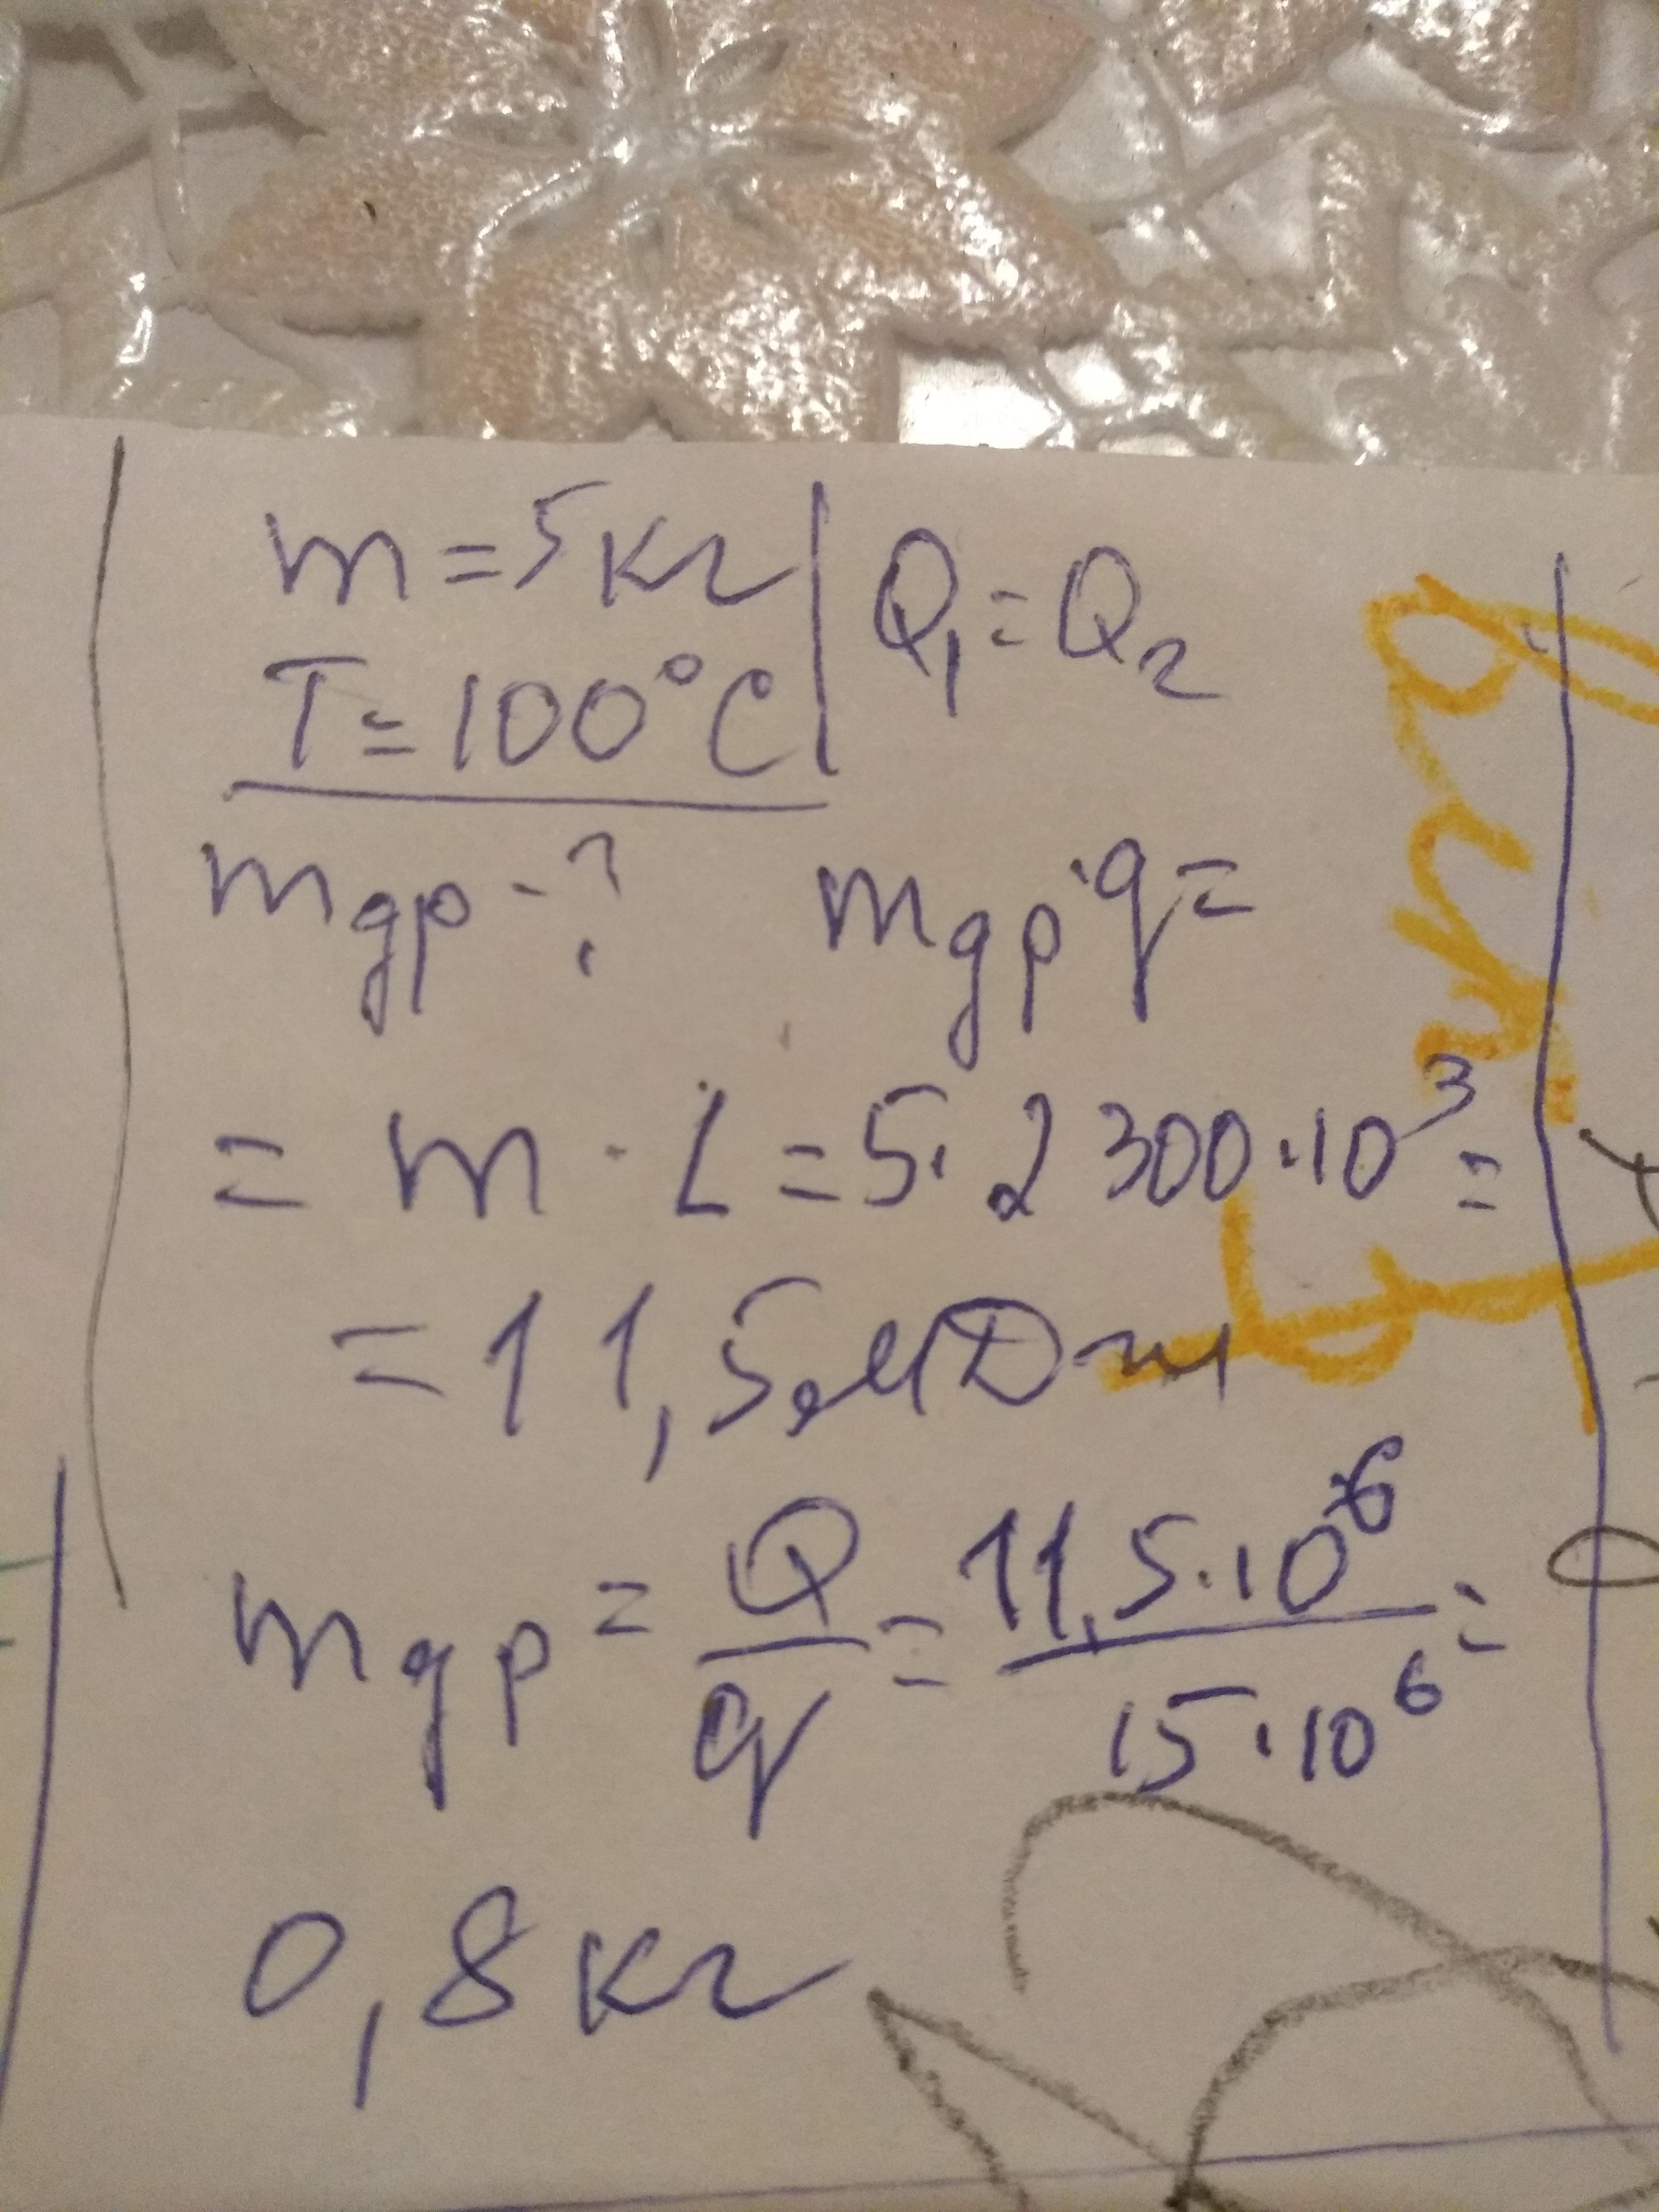 m = 5 кг
T = 100°C
Q₁ = Q₂
mgp - ?
mgp · q =
= m · L = 5 · 2300 · 10³ =
= 11,5 МДж
mgp = Q/q = 11,5 · 10⁶ / 15 · 10⁶ =
0,8 кг